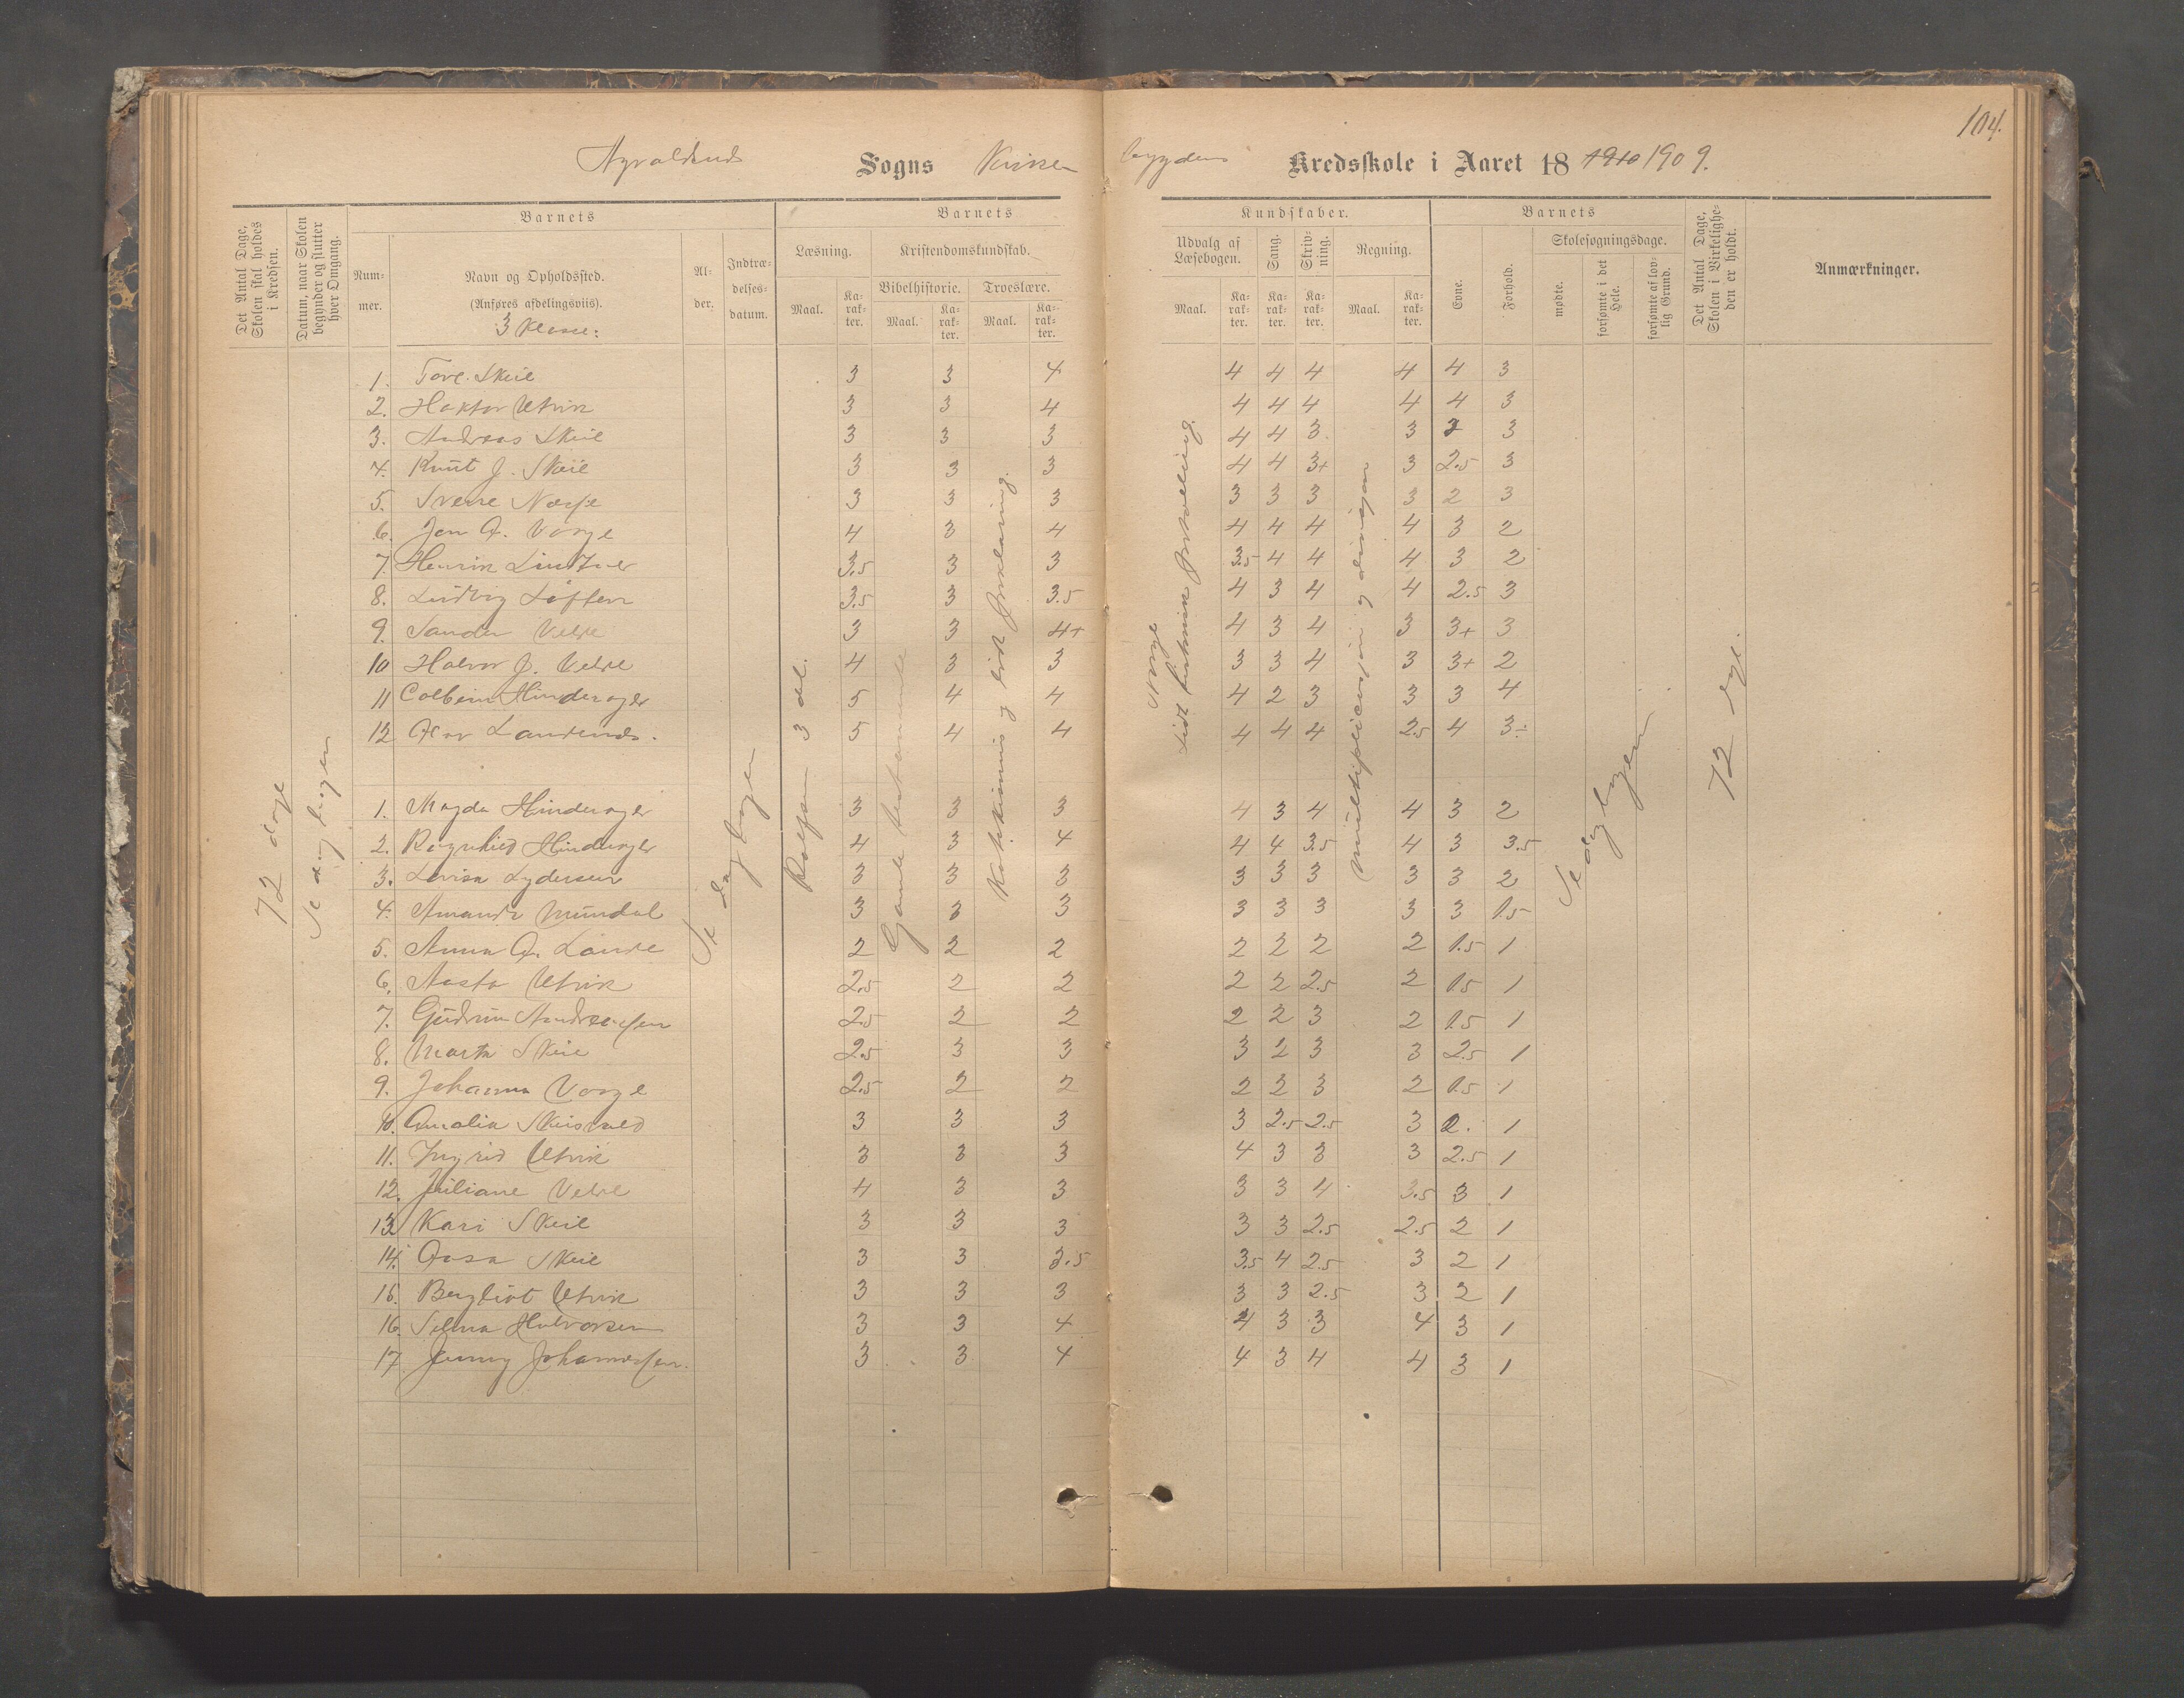 104.
Sogns
Kredsskole i Aaret 18 1910 1909.
Det Antal Dage, Skolen skal holdes i Kredsen.
Datum, naar Skolen begynder og slutter hver Omgang.
Barnets
Nummer.
Navn og Opholdssted.
(Anføres afdelingsviis).
3 Klasse:
Alder.
Indtrædelsesdatum.
Barnets
Læsning.
Maal.
Karakter.
Kristendomskundskab.
Bibelhistorie.
Maal.
Karakter.
Troeslære.
Maal.
Karakter.
Kundskaber.
Udvalg af Læsebogen.
Maal.
Karakter.
Sang.
Karakter.
Skrivning.
Karakter.
Regning.
Maal.
Karakter.
Barnets
Evne.
Forhold.
Skolesøgningsdage.
mødte.
forsømte i det Hele.
forsømte af lovlig Grund.
Det Antal Dage, Skolen i Virkeligheden er holdt.
Anmærkninger.
72 dage
Se dagbogen
Se dagbogen
Rolfsen 3 del.
Gamle testamente
Katekismus og lidt forklaring.
Norge
multiplicasjon og divisjon
Se dagbogen
72 dge.
1. Tore Skeie 3 3 4 4 4 4 4 4 3
2. Utvik 3 3 4 4 4 4 4 4 3
3. Andreas Skeie 3 3 3 4 4 3 3 3 3
4. Knut J. Skeie 3 3 3 4 4 3+ 3 2.5 3
5. Sverre Nesse 3 3 3 3 3 3 3 2 3
6. Jon A. Vorge 4 3 4 4 4 4 4 3 2
7. Henrik 3.5 3 3 3.5 4 4 4 3 2
8. Ludvig 3.5 3 3.5 4 3 4 4 2.5 3
9. Sander Velde 3 3 4+ 4 3 4 3 3+ 3
10 Halvor J. Velde 4 3 3 3 3 4 3 3+ 2
11 Colbein Hinderager 5 4 4 4 2 3 3 3 4
12 Olav 5 4 4 4 4 4 2.5 4 3÷
1. Magda Hinderager 3 3 3 4 3 4 4 3 2
2. Ragnhild Hinderager 4 3 4 4 4 3.5 4 3 3.5
3. Lovisa Lydersen 3 3 3 3 3 3 3 3 2
4. Amanda Mundal 3 3 3 3 3 3 3 3 1.5
5. Anna O. Lande 2 2 2 2 2 2 2 1.5 1
6. Aasta Utvik 2.5 2 2 2 2 2.5 2 1.5 1
7. Gudrun Andreasen 2.5 2 2 2 2 3 2 1.5 1
8. Marta Skeie 2.5 3 3 3 2 3 3 2.5 1
9. Johanna Vorge 2.5 2 2 2 2 3 2 1.5 1
10. Amalia 3 3 3 3 2.5 2.5 3 2. 1
11. Ingrid Utvik 3 3 3 4 3 3 3 2.5 1
12. Juliane Velde 4 3 3 3 3 4 3.5 3 1
13 Kari Skeie 3 3 3 3 3 2.5 2.5 2 1
14. Aasa Skeie 3 3 3.5 3.5 4 2.5 3 2 1
15. Bergliot Utvik 3 3 3 3 3 2.5 3 2 1
16. Selma Halvorsen 3 3 4 4 3 3 4 3 1
17 Jenny Johannessen. 3 3 4 4 3 4 4 3 1